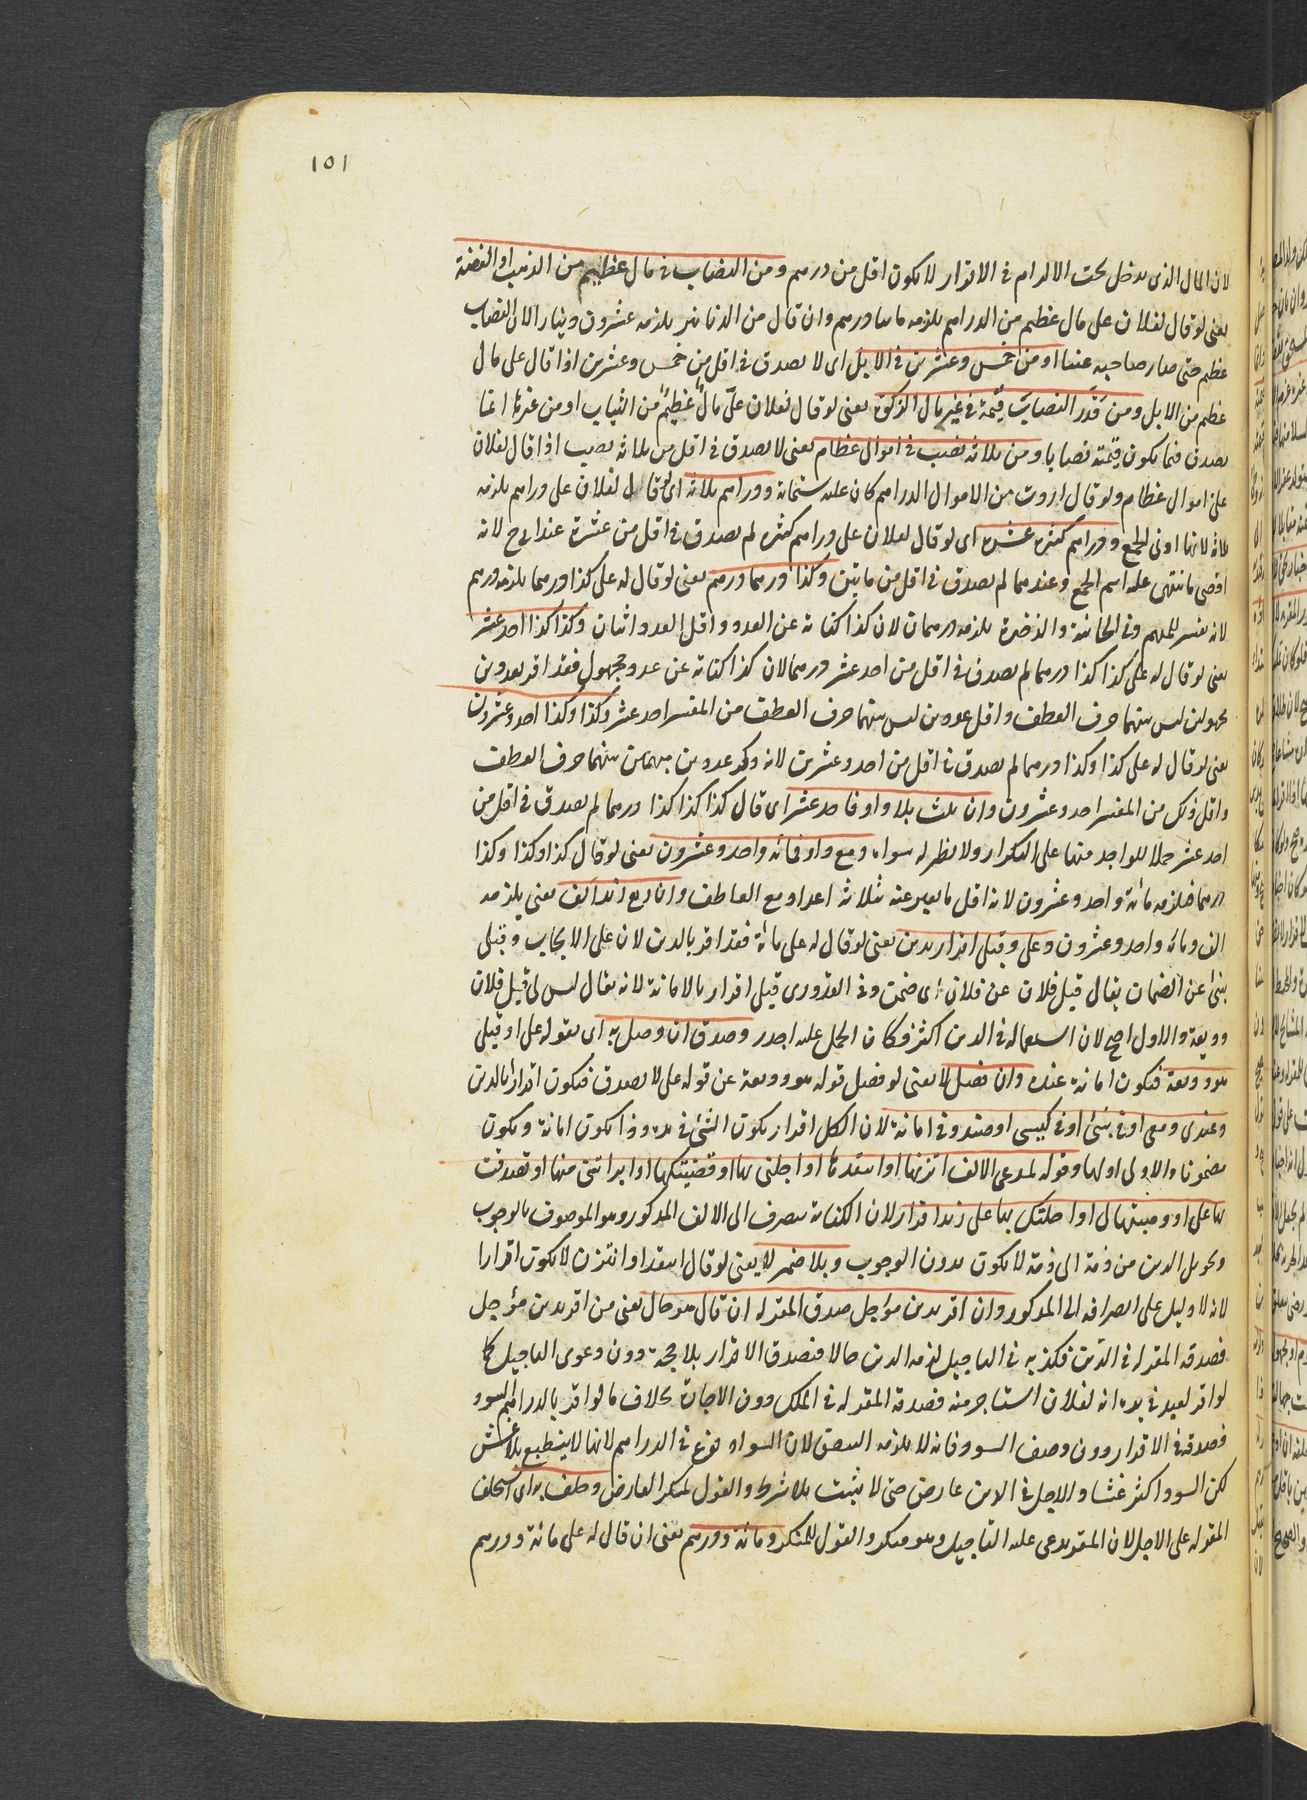 ١٥١
لان المال الذى يدخل تحت الالزام فى الاقرار لا يكون اقل من درهم ومن النصاب فى مال عظيم من الذهب او الفضة
يعنى لو قال لفلان على مال عظيم من الدراهم يلزمه مائتا درهم وان قال من الدنانير يلزمه عشرون دينارا لان النصاب
عظيم حتى صار صاحبه غنيا ومن خمس وعشرين فى الابل اى لا يصدق فى اقل من خمس وعشرين اذا قال على مال
عظيم من الابل ومن قدر النصاب قيمة فى غير مال الزكوة يعنى لو قال لفلان علىّ مال عظيم من الثياب او من غيرها انما
يصدق فيما يكون قيمته نصابا ومن ثلاثة نصب فى اموال عظام يعنى لا يصدق فى اقل من ثلاثة نصب اذا قال لفلان
على اموال عظام ولو قال اردت من الاموال الدراهم كان عليه ستمائة ودراهم ثلاثة اى لو قال لفلان على دراهم يلزمه
ثلاثة لانها ادنى الجمع ودراهم كثيرة عشرة اى لو قال لفلان على دراهم كثيرة لم يصدق فى اقل من عشرة عند ابى ح لانه
اقصى ما ينتهى عليه اسم الجمع وعندهما لم يصدق فى اقل من مائتين وكذا درهما درهم يعنى لو قال له على كذا درهما يلزمه درهم
لانه تفسير للمبهم وفى الخانية والذخيرة يلزمه درهمان لان كذا كناية عن العدد واقل العدد اثنان وكذا كذا احد عشر
يعنى لو قال له على كذا كذا درهما لم يصدق فى اقل من احد عشر درهما لان كذا كناية عن عدد مجهول فقد اقر بعددين
مجهولين ليس بينهما حرف العطف واقل عددين ليس بينهما حرف العطف من المفسر احد عشر وكذا وكذا احد وعشرون
يعنى لو قال له على كذا وكذا درهما لم يصدق فى اقل من احد وعشرين لانه ذكر عددين مبهمين بينهما حرف العطف
واقل ذلك من المفسر احد وعشرون وان ثلث بلا واو فاحد عشر اى قال كذا كذا كذا درهما لم يصدق فى اقل من
احد عشر حملا للواحد منها على التكرار ولا نظير له سواه ومع واو فمائة واحد وعشرون يعنى لو قال كذا وكذا وكذا
درهما فلزمه مائة واحد وعشرون لانه اقل ما يعبر عنه ثلاثة اعداد مع العاطف وان ربع زيد الف يعنى يلزمه
الف ومائة واحد وعشرون وعلى وقبلى اقرار بدين يعنى لو قال له على مائة فقد اقر بالدين لان على الايجاب وقبلى
ينبئ عن الضمان يقال قبل فلان عن فلان اى ضمن وفى القدورى قبلى اقرار بالامانة لانه يقال ليس لى قبل فلان
وديعة والاول اصح لان استعماله فى الدين اكثر فكان الحمل عليه اجدر وصدق ان وصل به اى بقوله على او قبلى
هو وديعة فيكون امانة عنده وان فصل لا يعنى لو فصل قوله هو وديعة عن قوله على لا يصدق فيكون اقرارا بالدين
وعندى ومعى او فى بيتى او فى كيسى او صندوقى امانة لان الكل اقرار بكون الشئ فى يده وذا يكون امانة ويكون
مضمونا والاولى اولها وقوله لمدعى الالف اتزنها او انتقدها او اجلنى بها او قضيتكها او ابرأتنى منها او تصدقت
بها على او وهبتها لى او احلتك بها على زيد اقرار لان الكناية تنصرف الى الالف المذكور وهو الموصوف بالوجوب
وتحويل الدين من ذمة الى ذمة لا يكون بدون الوجوب وبلا ضمير لا يعنى لو قال انتقد او اتزن لا يكون اقرارا
لانه لا دليل على انصرافه الى المذكور وان اقر بدين مؤجل صدق المقر له ان قال هو حال يعنى من اقر بدين مؤجل
فصدقه المقر له فى الدين فكذبه فى التأجيل لزمه الدين حالا فنصدق الاقرار بلا حجة دون دعوى التأجيل كما
لو اقر لعبد فى يده انه لفلان استاجر منه فصدقه المقر له فى الملك دون الاجارة بخلاف ما لو اقر بالدراهم السود
فصدقه فى الاقرار دون وصف السود فانه لا يلزمه البيض لان السواد نوع فى الدراهم لانها لا ينطبع بلا غش
لكن السود اكثر غشا والاجل فى الدين عارض حتى لا يثبت بلا شرط والقول لمنكر العارض وحلف به اى استحلف
المقر له على الاجل لان المقر يدعى عليه التأجيل وهو منكر والقول للمنكر ومائة ودرهم يعنى ان قال له على مائة ودرهم